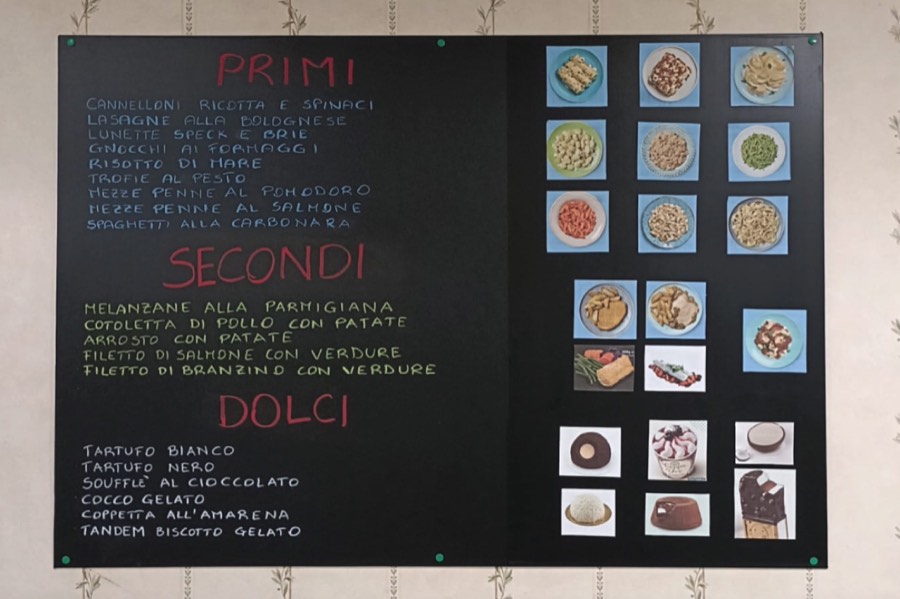 PRIMI
CANNELLONI RICOTTA E SPINACI
LASAGNE ALLA BOLOGNESE
LUNETTE SPECK E BRIE
GNOCCHI AI FORMAGGI
RISOTTO DI MARE
TROFIE AL PESTO
MEZZE PENNE AL POMODORO
MEZZE PENNE AL SALMONE
SPAGHETTI ALLA CARBONARA
SECONDI
MELANZANE ALLA PARMIGIANA
COTOLETTA DI POLLO CON PATATE
ARROSTO CON PATATE
FILETTO DI SALMONE CON VERDURE
FILETTO DI BRANZINO CON VERDURE
DOLCI
TARTUFO BIANCO
TARTUFO NERO
SOUFFLÈ AL CIOCCOLATO
COCCO GELATO
COPPETTA ALL'AMARENA
TANDEM BISCOTTO GELATO